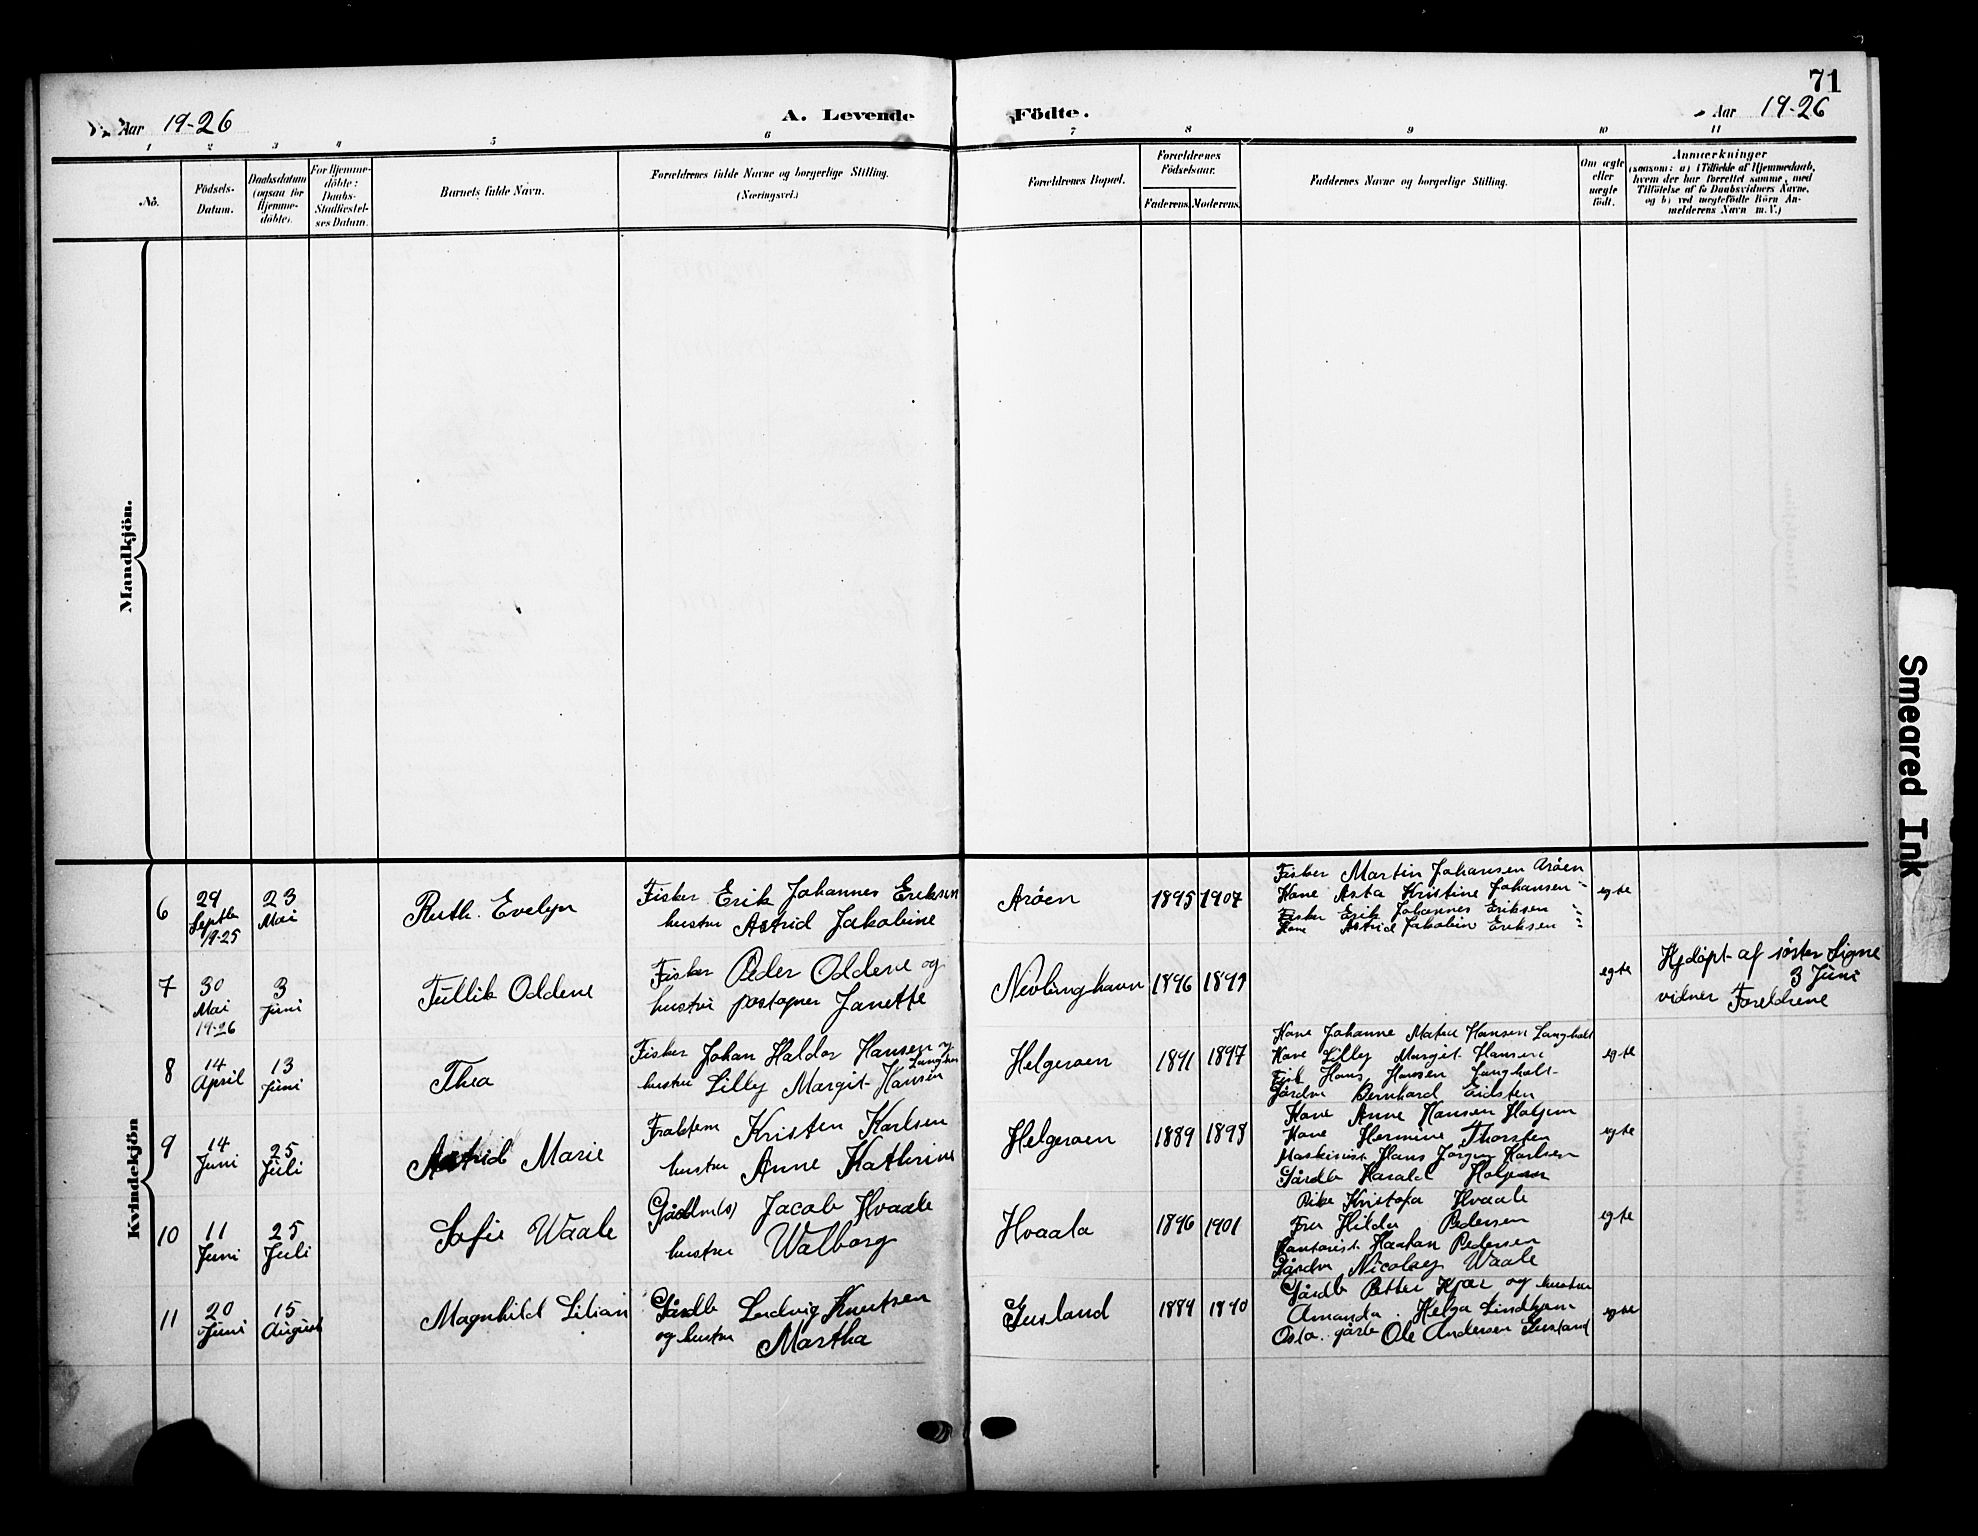 71
Aar 19-26
A. Levende Födte.
Aar 19-26
1 2 3 4 5 6 7 8 9 10 11
No.
Födsels-Datum.
Daabsdatum (ogsaa for Hjemme-döbte).
For Hjemme-döbte: Daabs-Stadfæstel-ses Datum.
Barnets fulde Navn.
Forældrenes fulde Navne og borgerlige Stilling.
(Næringsvei.)
Forældrenes Bopæl.
Forældrenes Födselsaar.
Faderens. Moderens.
Faddernes Navne og borgerlige Stilling.
Om ægte eller uægte födt.
Anmærkninger
(saasom: a) i Tilfælde af Hjemmedaab,
hvem der har forrettet samme, med
Tilföielse af to Daabsvidners Navne,
og b) ved uægtefödte Börn An-
melderens Navn m. V.)
Mandkjön.
Kvindekjön
6
29 Septbr 19-25
23 Mai
Ruth. Evelyn
Fisker Erik Johannes Eriksen
hustru Astrid Jakobine
Aröen
1895 1907
Fisker Martin Johansen Aröen
Kone Asta Kristine Johansen -
Fisker Erik Johannes Eriksen
Kone Astrid Jakobin Eriksen
egte
7
30 Mai 19-26
3 Juni
Tullik Oddene
Fisker Peder Oddene og
hustru postopner Janette
Nevlunghavn
1896 1899
egte
Hjdöpt af söster Signe
3 Juni
vidner Foreldrene
8
14 April
13 Juni
Thea
Fisker Johan Haldor Hansen og
hustru Lilly Margit Hansen
Helgeroen
1891 1897
Kone Johanne Matea Hansen Langholt
Kone Lilly Margit Hansen
Fisk Hans Hansen Langholt-
Gårdbr Bernhard Eidsten
egte
9
14 Juni
25 Juli
Astrid Marie
Kristen Karlsen
hustru Anne Kathrine
Helgeroen
1889 1898
Kone Anne Hansen
Kone Hermine Thorsten
Maskinist Hans Jörgen Karlsen
Gårdb Harald
egte
10
11 Juni
25 Juli
Sofie Waale
Jacob Hvaale
hustru Walborg
Hvaala
1896 1901
Pike Kristofa Hvaale
Fru Hilda Pedersen
Kontorist Haakon Pedersen
Gårdbr Nicolay Waale
egte
11
20 Juni
15 August
Magnhild Lilian
Gårdb Ludvig Knutsen
og hustru Martha
Gusland
1889 1890
Gårdb Petter Kjær og hustru
Amanda. Helga Lindhjem
gårdb Ole Andersen Gusland
egte
Smeared Ink